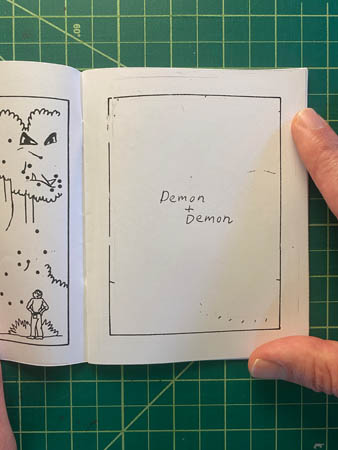 Demon
+
Demon
60°